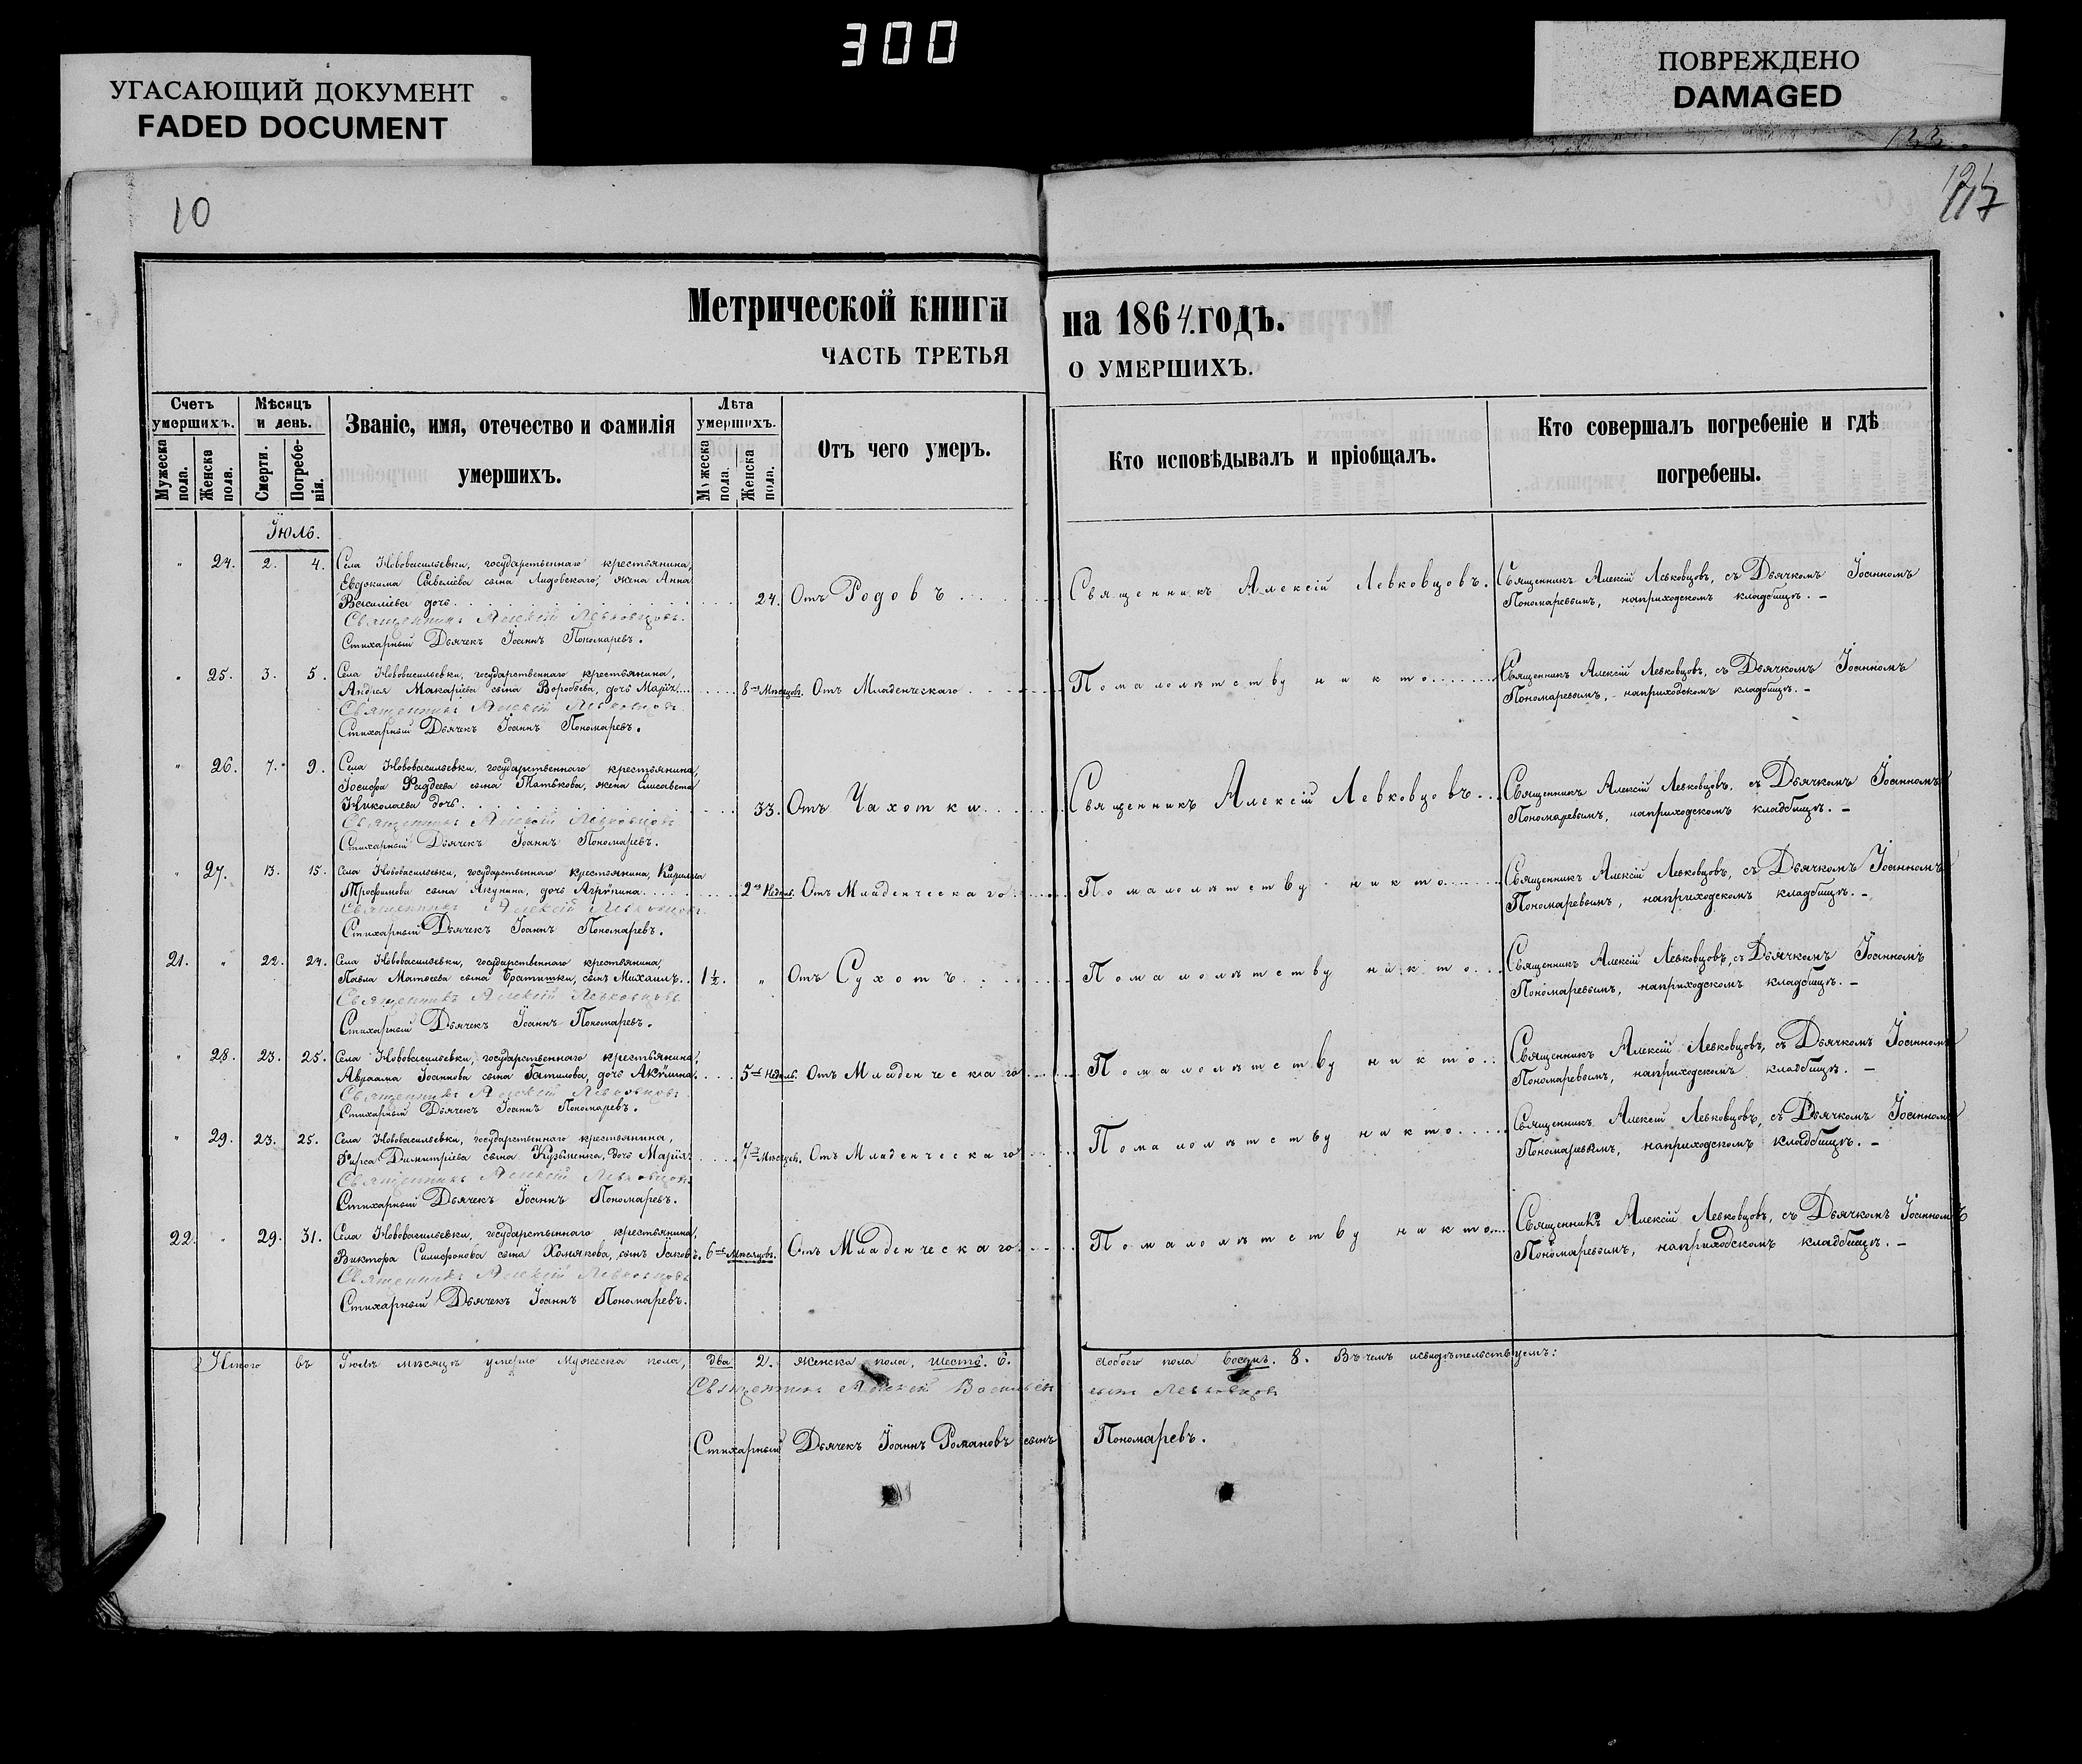 300
УГАСАЮЩИЙ ДОКУМЕНТ
FADED DOCUMENT
ПОВРЕЖДЕНО
DAMAGED
10
117
Метрической книги на 1864. годъ.
ЧАСТЬ ТРЕТЬЯ О УМЕРШИХЪ.
Счетъ умершихъ. Мѣсяцъ и день. Званіе, имя, отечество и фамилія умершихъ. Лѣта умершихъ. Отъ чего умеръ. Кто исповѣдывалъ и пріобщалъ. Кто совершалъ погребеніе и гдѣ погребены.
Мужеска пола. Женска пола. Смерти. Погребенія. Мужеска пола. Женска пола.
Іюль.
" 24. 2. 4. Села Нововасильевки, государственнаго крестьянина,
Евдокима Савеліева сына Лидовскаго, жена Анна
Василіева дочь. 24. Отъ Родовъ Священникъ Алексій Левковцовъ. Священникъ Алексій Левковцовъ, съ Дьячкомъ Іоанномъ
Пономаревымъ, наприходскомъ кладбищѣ. –
Священникъ Алексій Левковцовъ.
Стихарный Дьячекъ Іоаннъ Пономаревъ.
" 25. 3. 5. Села Нововасильевки, государственнаго крестьянина,
Андрея Макаріева сына Воробьева, дочь Марія 8 Мѣсяцовъ. Отъ Младенческаго Помалолѣтству никто Священникъ Алексій Левковцовъ, съ Дьячкомъ Іоанномъ
Пономаревымъ, наприходскомъ кладбищѣ. –
Священникъ Алексій Левковцовъ
Стихарный Дьячекъ Іоаннъ Пономаревъ.
" 26. 7. 9. Села Нововасильевки, государственнаго крестьянина,
Іосифа Фаддеева сына Татькова, жена Елисавета
Николаева дочь. 33. Отъ Чахотки Священникъ Алексій Левковцовъ Священникъ Алексій Левковцовъ, съ Дьячкомъ Іоанномъ
Пономаревымъ, наприходскомъ кладбищѣ. –
Священникъ Алексій Левковцовъ
Стихарный Дьячекъ Іоаннъ Пономаревъ.
" 27. 13. 15. Села Нововасильевки, государственнаго крестьянина, Кирилла
Трофимова сына Акунина, дочь Агрипина 2 Недель. Отъ Младенческаго Помалолѣтству никто Священникъ Алексій Левковцовъ, съ Дьячкомъ Іоанномъ
Пономаревымъ, наприходскомъ кладбищѣ. –
Священникъ Алексій Левковцовъ
Стихарный Дьячекъ Іоаннъ Пономаревъ.
21. " 22. 24. Села Нововасильевки, государственнаго крестьянина,
Павла Матѳеева сына Братитки, сынъ Михаилъ. 1½. " Отъ Сухотъ Помалолѣтству никто Священникъ Алексій Левковцовъ, съ Дьячкомъ Іоанномъ
Пономаревымъ, наприходскомъ кладбищѣ. –
Священникъ Алексій Левковцовъ
Стихарный Дьячекъ Іоаннъ Пономаревъ.
" 28. 23. 25. Села Нововасильевки, государственнаго крестьянина,
Авраама Іоаннова сына Гатилова, дочь Акулина. 5 Недель. Отъ Младенческаго Помалолѣтству никто Священникъ Алексій Левковцовъ, съ Дьячкомъ Іоанномъ
Пономаревымъ, наприходскомъ кладбищѣ. –
Священникъ Алексій Левковцовъ
Стихарный Дьячекъ Іоаннъ Пономаревъ.
" 29. 23. 25. Села Нововасильевки, государственнаго крестьянина,
Фирса Димитріева сына Кузьменка, дочь Марія 7 Мѣсяцев. Отъ Младенческаго Помалолѣтству никто Священникъ Алексій Левковцовъ, съ Дьячкомъ Іоанномъ
Пономаревымъ, наприходскомъ кладбищѣ. –
Священникъ Алексій Левковцовъ
Стихарный Дьячекъ Іоаннъ Пономаревъ.
22. " 29. 31. Села Нововасильевки, государственнаго крестьянина,
Виктора Симфонова сына Хомякова, сынъ Іаковъ. 6 Мѣсяцовъ. Отъ Младенческаго Помалолѣтству никто Священникъ Алексій Левковцовъ, съ Дьячкомъ Іоанномъ
Пономаревымъ, наприходскомъ кладбищѣ. –
Священникъ Алексій Левковцовъ
Стихарный Дьячекъ Іоаннъ Пономаревъ.
Итого въ Іюлѣ мѣсяцѣ умерло мужеска пола, два 2. женска пола, шесть. 6. Аобоего пола восемь. 8. Въ чемъ исвидѣтельствуемъ:
Священникъ Алексій Василіевъ сынъ Левковцовъ
Стихарный Дьячекъ Іоаннъ Романовъ сынъ Пономаревъ.